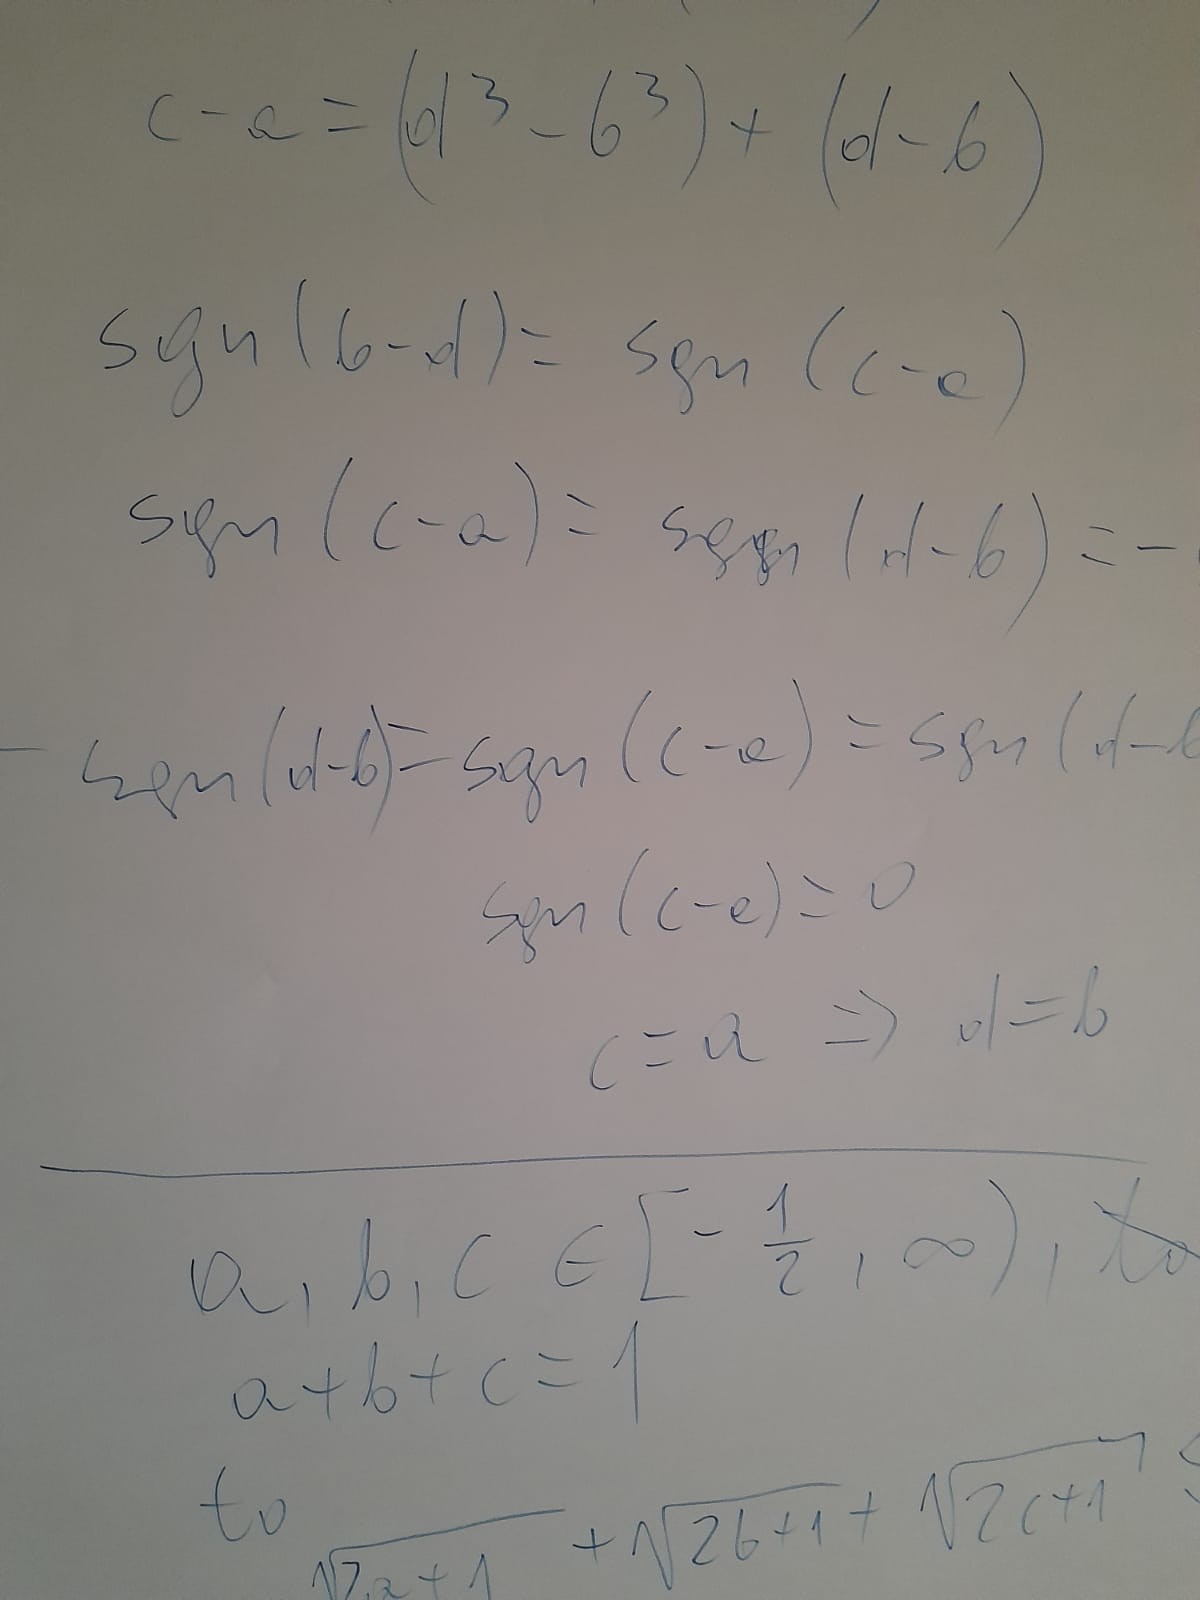 c-a=(d³-b³)+(d-b)
sgn(b-d)=sgn(c-a)
sgn(c-a)=sgn(d-b)=-
-sgn(d-b)=sgn(c-a)=sgn(d-b
sgn(c-a)=0
c=a⇒d=b
a,b,c∈[-1/2,∞),
a+b+c=1
to
√2a+1+√2b+1+√2c+1≤